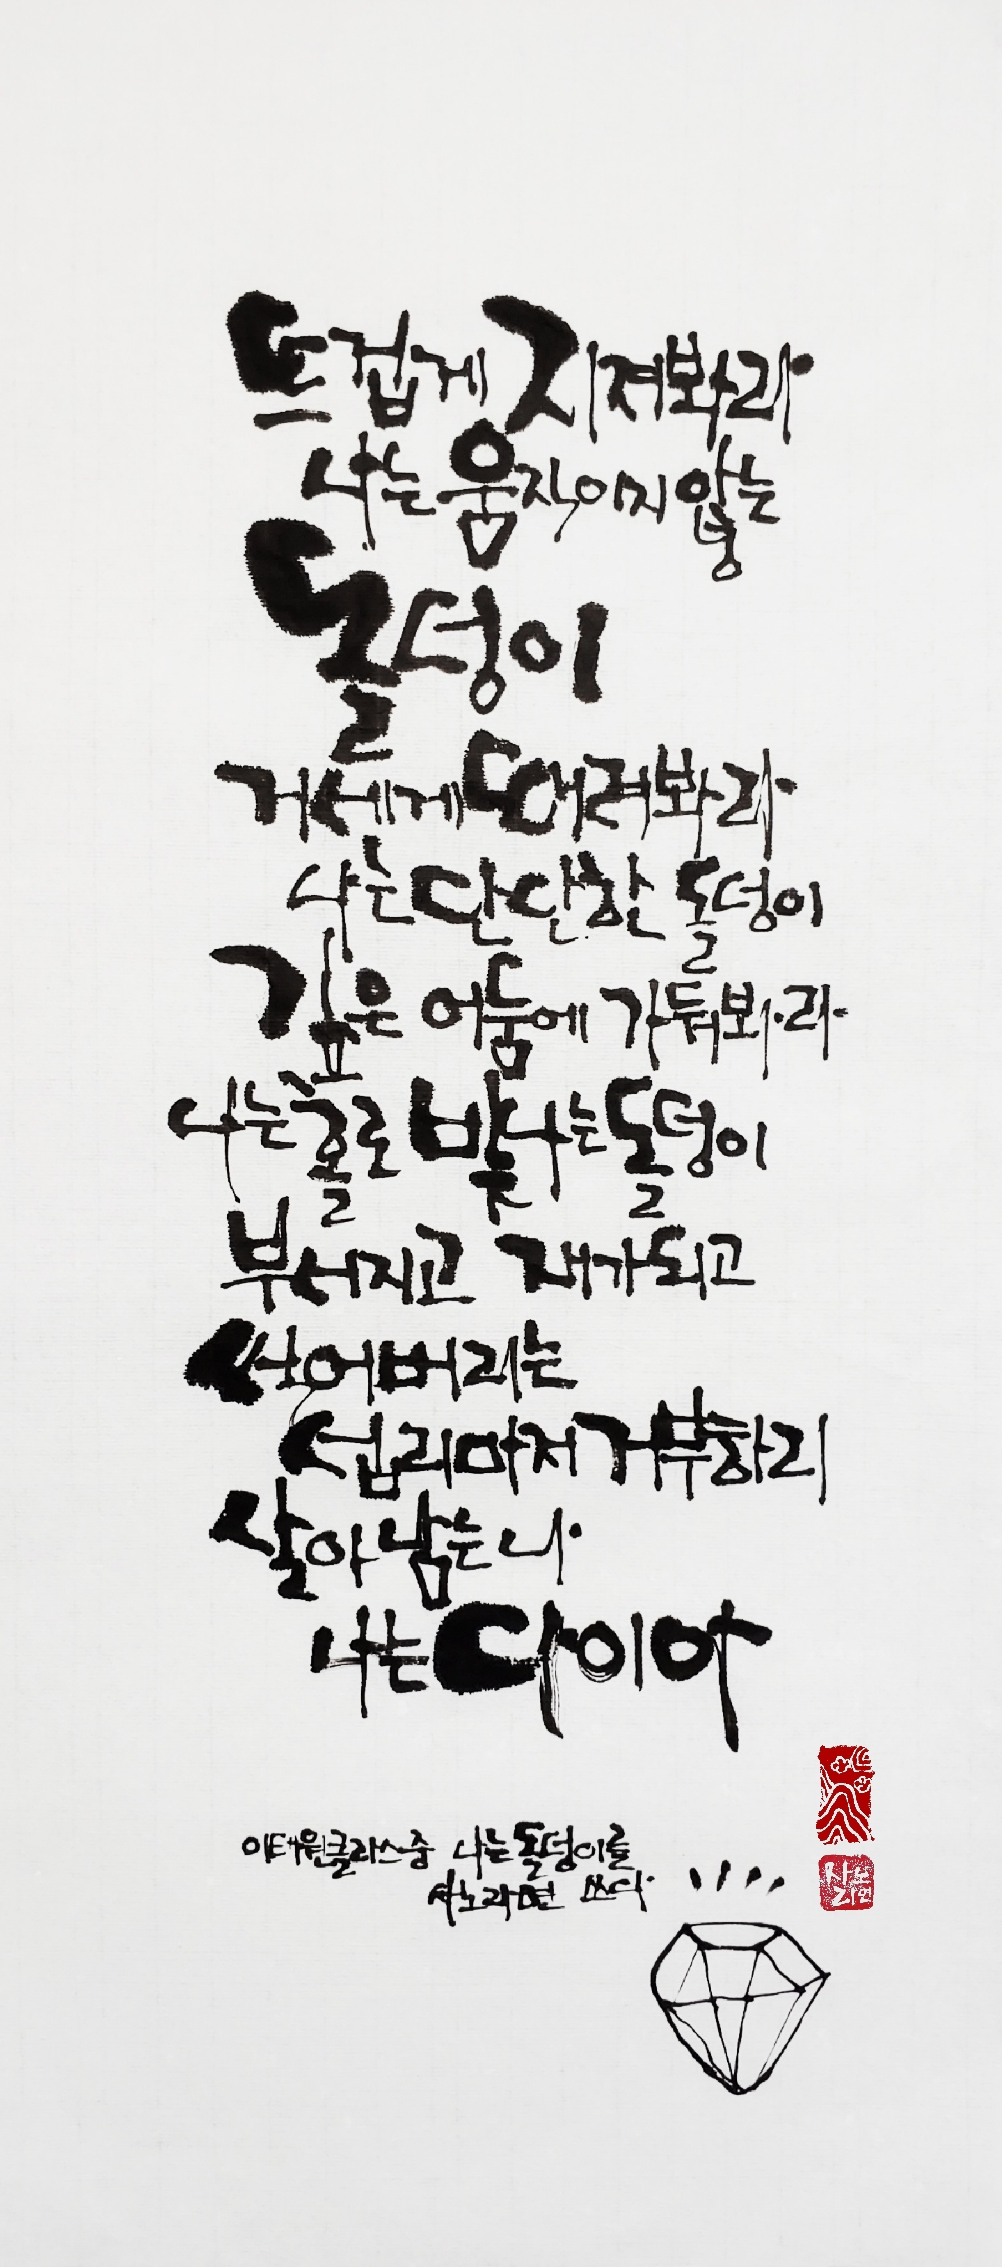 뜨겁게 지져봐라
나는 움직이지 않는
돌덩이
거세게 때려봐라
나는 단단한 돌덩이
깊은 어둠에 가둬봐라
나는 홀로 빛나는 돌덩이
부서지고 재가 되고
썩어버리는
섭리마저 거부하리
살아남은 나
나는 다이아
이태원클라쓰중 나는 돌덩이를
사노라면 쓰다
사노
라면